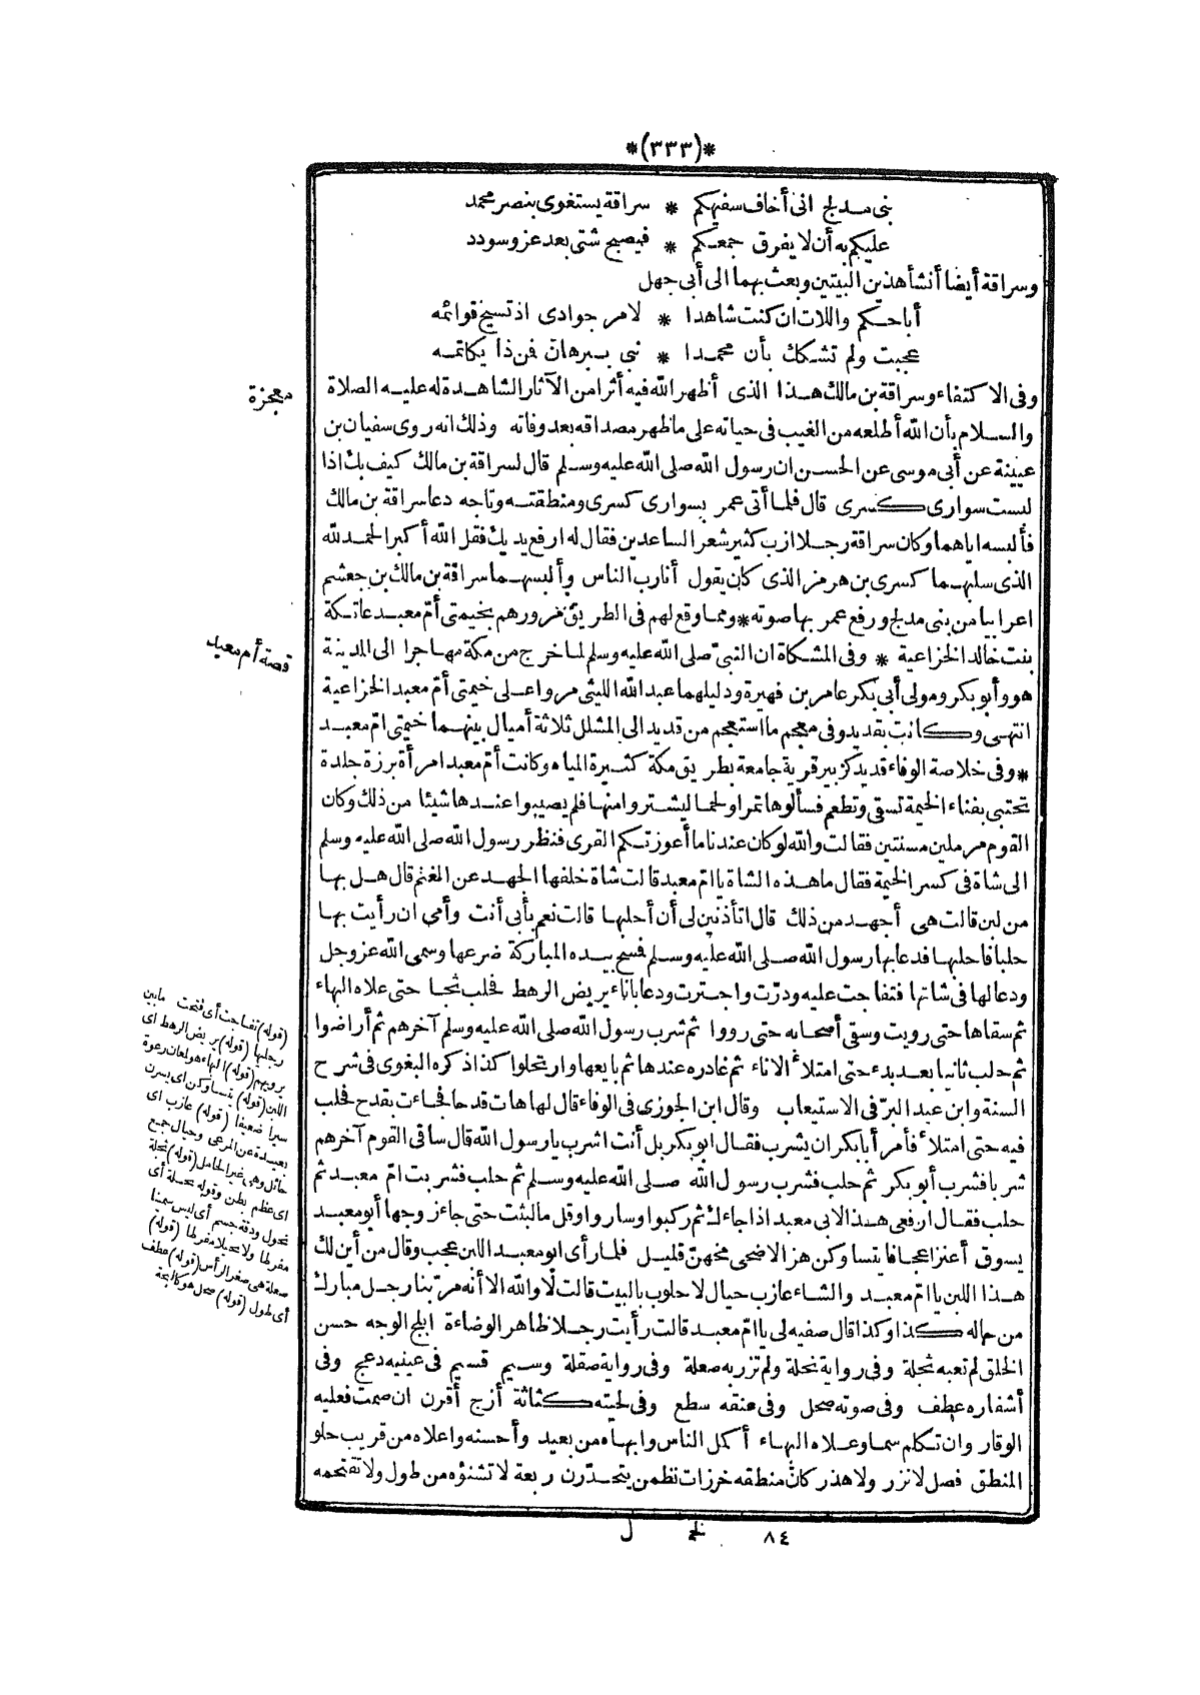 *(٣٣٣)*
بنى مدلج انى أخاف سفيهكم * سراقة يستغوى بنصر محمد
عليكم به أن لا يفرق جمعكم * فيصبح شتى بعد عز وسودد
وسراقة أيضا أنشأ هذين البيتين وبعث بهما الى أبى جهل
أبا حكم واللات ان كنت شاهدا * لامر جوادى اذ تسيخ قوائمه
عجبت ولم تشكك بأن محمدا * نبى ببرهان فمن ذا يكاتمه
وفى الاكتفاء وسراقة بن مالك هذا الذى أظهر الله فيه أثرا من الآثار الشاهدة له عليه الصلاة
معجزة
والسلام بأن الله أطلعه من الغيب فى حياته على ما ظهر مصداقه بعد وفاته وذلك انه روى سفيان بن
عيينة عن أبى موسى عن الحسن ان رسول الله صلى الله عليه وسلم قال لسراقة بن مالك كيف بك اذا
لبست سوارى كسرى قال فلما أتى عمر بسوارى كسرى ومنطقته وتاجه دعا سراقة بن مالك
فألبسه اياهما وكان سراقة رجلا ازب كثير شعر الساعدين فقال له ارفع يديك فقل الله أكبر الحمد لله
الذى سلبهما كسرى بن هرمز الذى كان يقول أنا رب الناس وألبسهما سراقة بن مالك بن جعشم
اعرابيا من بنى مدلج ورفع عمر بها صوته * ومما وقع لهم فى الطريق مرورهم بخيمتى أم معبد عاتكة
بنت خالد الخزاعية * وفى المشكاة ان النبى صلى الله عليه وسلم لما خرج من مكة مهاجرا الى المدينة
قصة أم معبد
هو وأبو بكر ومولى أبى بكر عامر بن فهيرة ودليلهما عبد الله الليثى مروا على خيمتى أم معبد الخزاعية
انتهى وكانت بقديد وفى معجم ما استعجم من قديد الى المشلل ثلاثة أميال بينهما خيمتى ام معبد
* وفى خلاصة الوفاء قديد كزبير قرية جامعة بطريق مكة كثيرة المياه وكانت أم معبد امرأة برزة جلدة
تحتبى بفناء الخيمة تسقى وتطعم فسألوها تمرا ولحما ليشتروا منها فلم يصيبوا عندها شيئا من ذلك وكان
القوم مرملين مسنتين فقالت والله لو كان عندنا ما أعوزتكم القرى فنظر رسول الله صلى الله عليه وسلم
الى شاة فى كسر الخيمة فقال ما هذه الشاة يا ام معبد قالت شاة خلفها الجهد عن الغنم قال هل بها
من لبن قالت هى أجهد من ذلك قال اتأذنين لى أن أحلبها قالت نعم بأبى أنت وأمى ان رأيت بها
حلبا فاحلبها فدعا بها رسول الله صلى الله عليه وسلم فمسح بيده المباركة ضرعها وسمى الله عز وجل
ودعا لها فى شاتها فتفاجت عليه ودرّت واجترت ودعا باناء يريض الرهط فحلب ثجا حتى علاه البهاء
ثم سقاها حتى رويت وسقى أصحابه حتى رووا ثم شرب رسول الله صلى الله عليه وسلم آخرهم ثم أراضوا
ثم حلب ثانيا بعد بدء حتى امتلأ الاناء ثم غادره عندها ثم بايعها وارتحلوا كذا ذكره البغوى فى شرح
السنة وابن عبد البرّ فى الاستيعاب وقال ابن الجوزى فى الوفاء قال لها هات قدحا فجاءت بقدح فحلب
فيه حتى امتلأ فأمر أبا بكر ان يشرب فقال ابو بكر بل أنت اشرب يا رسول الله قال ساقى القوم آخرهم
شربا فشرب أبو بكر ثم حلب فشرب رسول الله صلى الله عليه وسلم ثم حلب فشربت امّ معبد ثم
حلب فقال ارفعى هذا لابى معبد اذا جاءك ثم ركبوا وساروا وقل ما لبثت حتى جاء زوجها أبو معبد
يسوق أعنزا عجافا يتساوكن هزالا ضحى مخهنّ قليل فلما رأى ابو معبد اللبن عجب وقال من أين لك
هذا اللبن يا امّ معبد والشاء عازب حيال لا حلوب بالبيت قالت لا والله الا أنه مرّ بنا رجل مبارك
من حاله كذا وكذا قال صفيه لى يا امّ معبد قالت رأيت رجلا ظاهر الوضاءة ابلج الوجه حسن
الخلق لم تعبه ثجلة وفى رواية نحلة ولم تزر به صعلة وفى رواية صقلة وسيم قسيم فى عينيه دعج وفى
أشفاره عطف وفى صوته صحل وفى عنقه سطع وفى لحيته كثاثة أزج أقرن ان صمت فعليه
الوقار وان تكلم سما وعلاه البهاء أكمل الناس وابهاه من بعيد وأحسنه واعلاه من قريب حلو
المنطق فصل لا نزر ولا هذر كأنّ منطقه خرزات نظمن يتحدّرن ربعة لا تشنؤه من طول ولا تقتحمه
(قوله) تفاجت أى فتحت مابين
رجليها (قوله) يريض الرهط اى
يرويهم (قوله) البهاء هو لمعان رغوة
اللبن (قوله) يتساوكن اى يسرن
سيرا ضعيفا (قوله) عازب اى
بعيدة عن المرعى وحيال جمع
حائل وهى غير الحامل (قوله) ثجلة
اى عظم بطن وقوله نحلة أى
نحول ودقة جسم أى ليس سمينا
مفرطا ولا نحيلا مفرطا (قوله)
صعلة هى صغر الرأس (قوله) عطف
أى طول (قوله) صحل هو كالبحة
٨٤ نخ ل